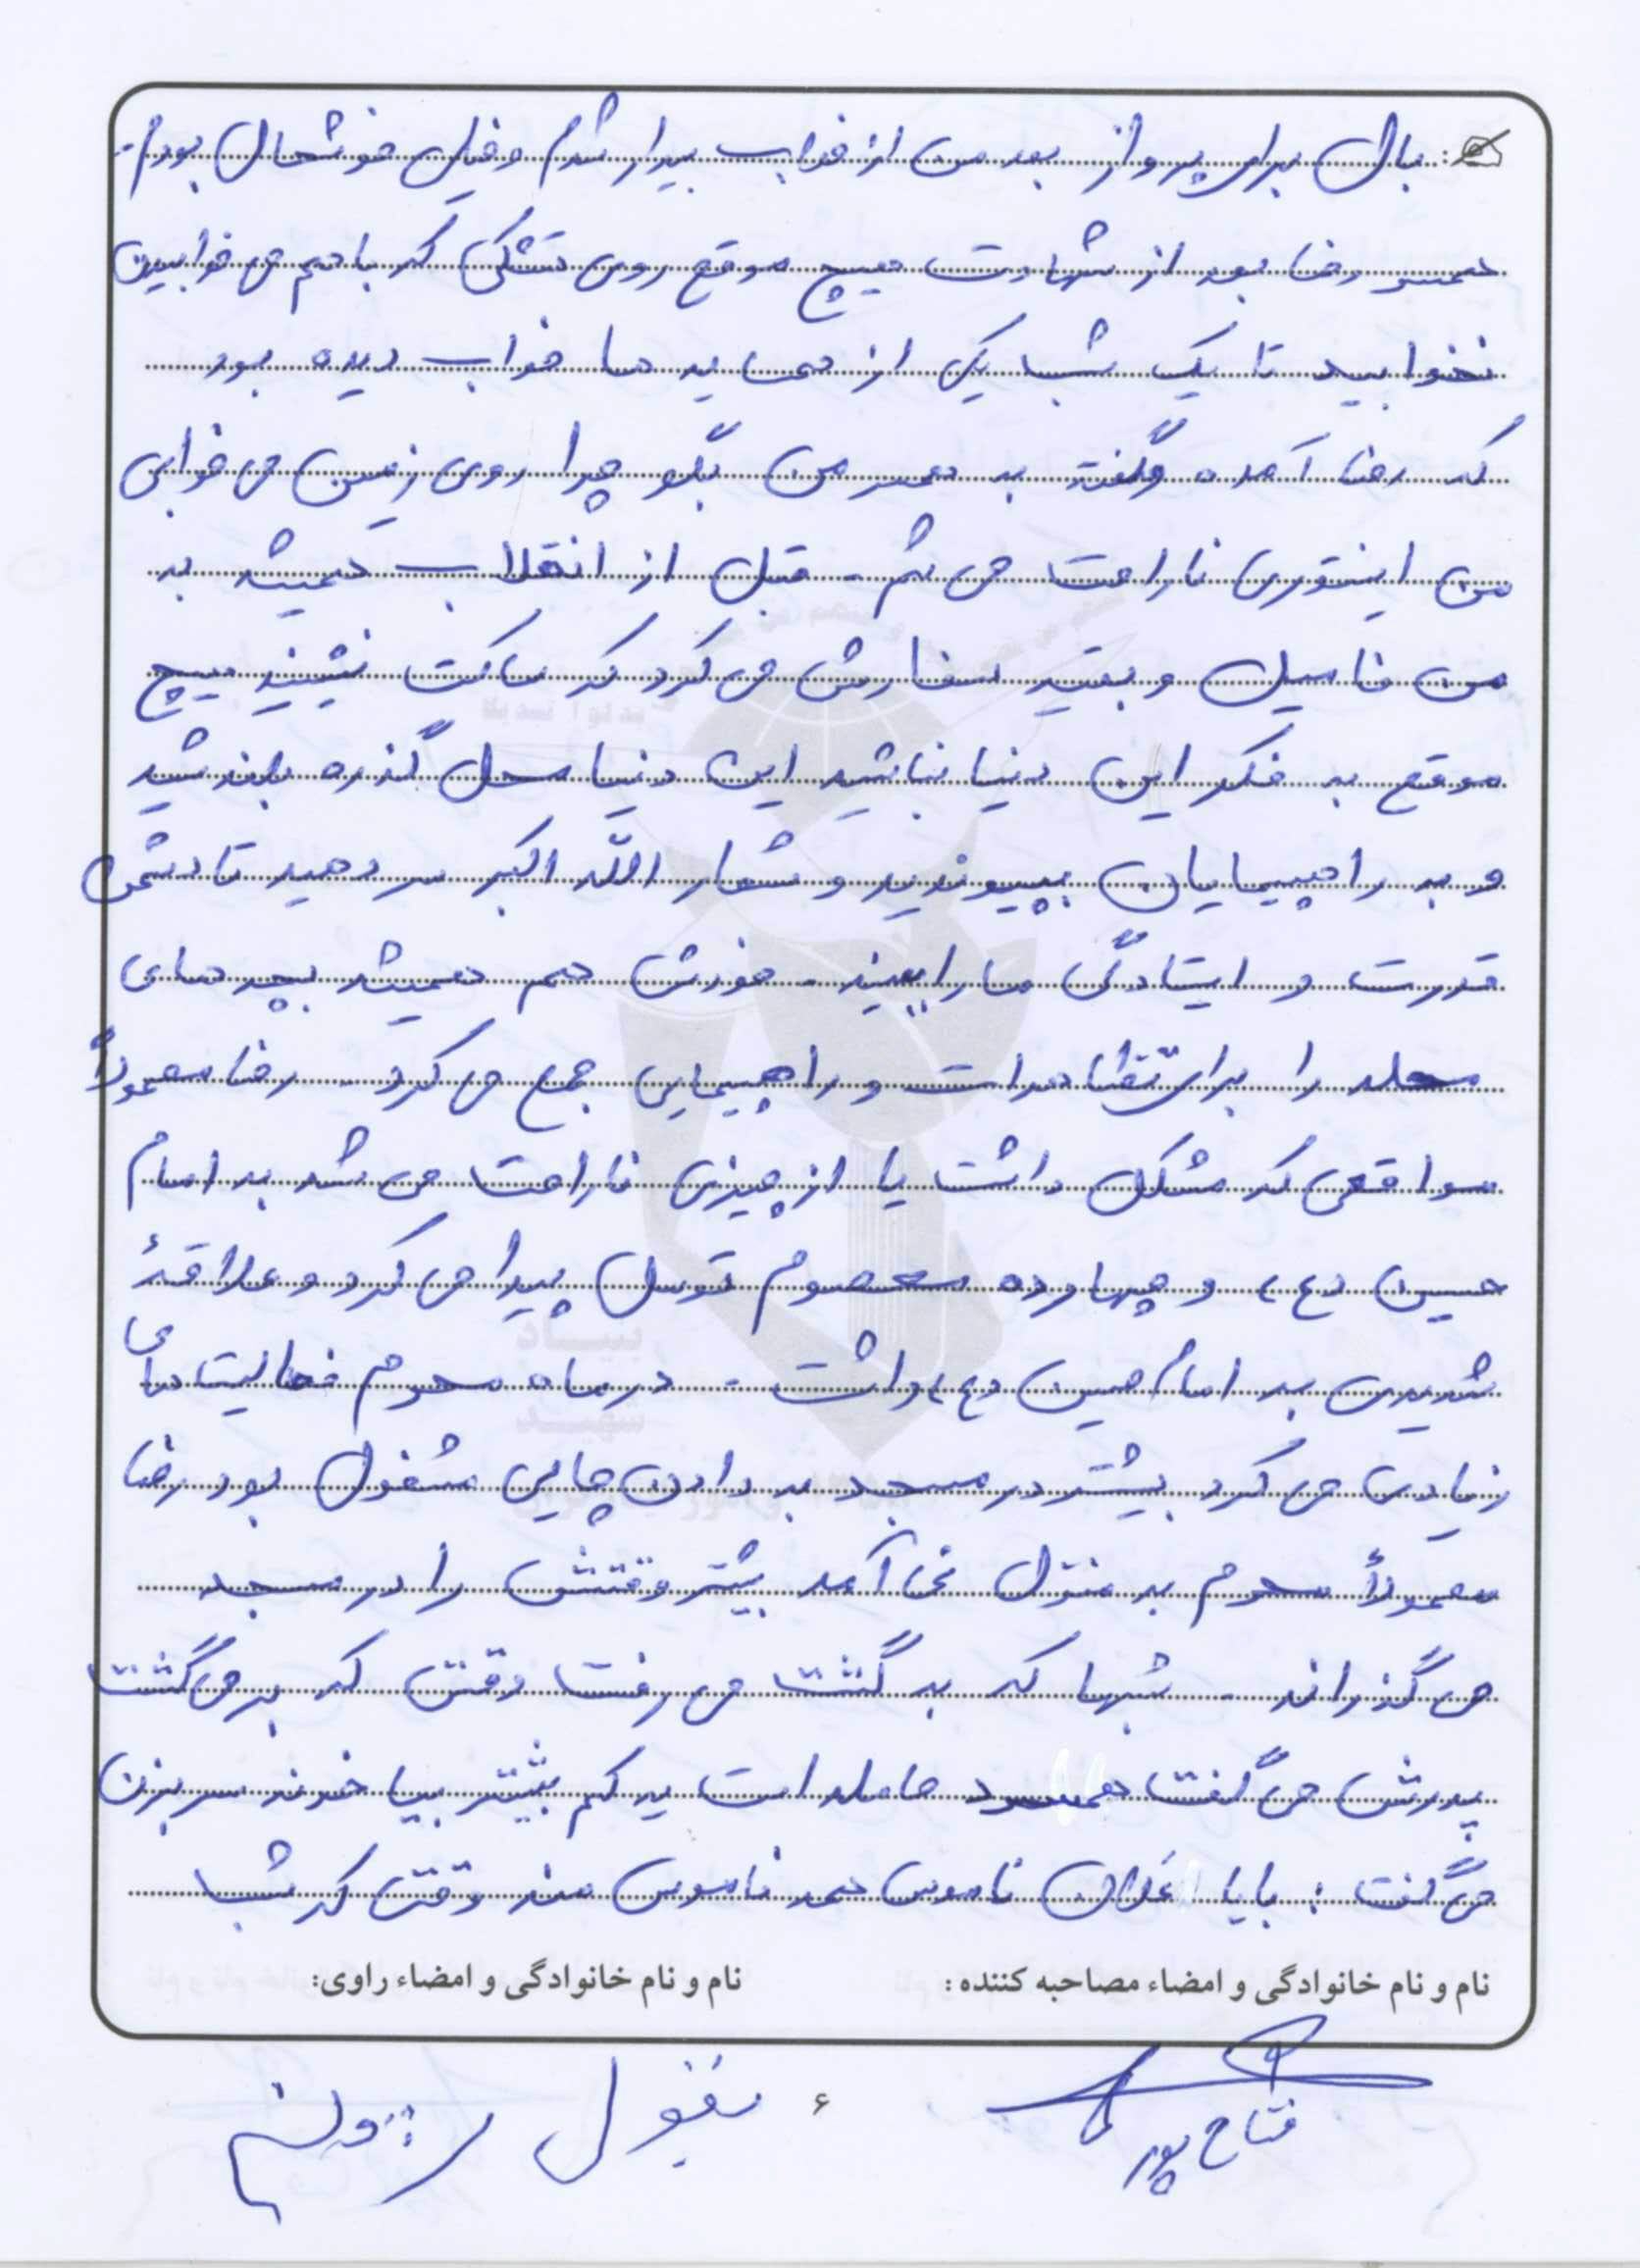 : بال برای پرواز بعد من از خواب بیدار شدم و خیلی خوشحال بودم.
همسر رضا بعد از شهادت هیچ موقع روی تشکی که با هم می خوابیدن
نخوابید تا یک شب یکی از همسایه ها خواب دیده بود
که رضا آمده وگفته به همسر من بگو چرا روی زمین می خوابی
من اینتوری ناراحت می شم. قبل از انقلاب همیشه به
من فامیل و بقیه سفارش می کرد که ساکت نشینید هیچ
موقع به فکر این دنیا نباشید این دنیا محل گذره بلند شید
و به راهپیمایان بپیوندید و شعار الله اکبر سر دهید تا دشمن
قدرت و ایستادگی ما را ببیند. خودش هم همیشه بچه های
محله را برای تظاهرات و راهپیمایی جمع می کرد. رضا معمولاً
مواقعی که مشکل داشت یا از چیزی ناراحت می شد به امام
حسین (ع) و چهارده معصوم توسل پیدا می کرد و علاقهٔ
شدیدی به امام حسین (ع) داشت. در ماه محرم فعالیت های
زیادی می کرد بیشتر در مسجد به دادن چایی مشغول بود رضا
معمولاً محرم به منزل نمی آمد بیشتر وقتش را در مسجد
می گذراند. شبها که به گشت می رفت وقتی که برمی گشت
پدرش می گفت همسرت حامله است یه کم بیشتر بیا خونه سر بزن
می گفت: بابا ناموس همه ناموس منه وقتی که شب
نام و نام خانوادگی و امضاء مصاحبه کننده :
نام و نام خانوادگی و امضاء راوی:
فتاح پور
۶